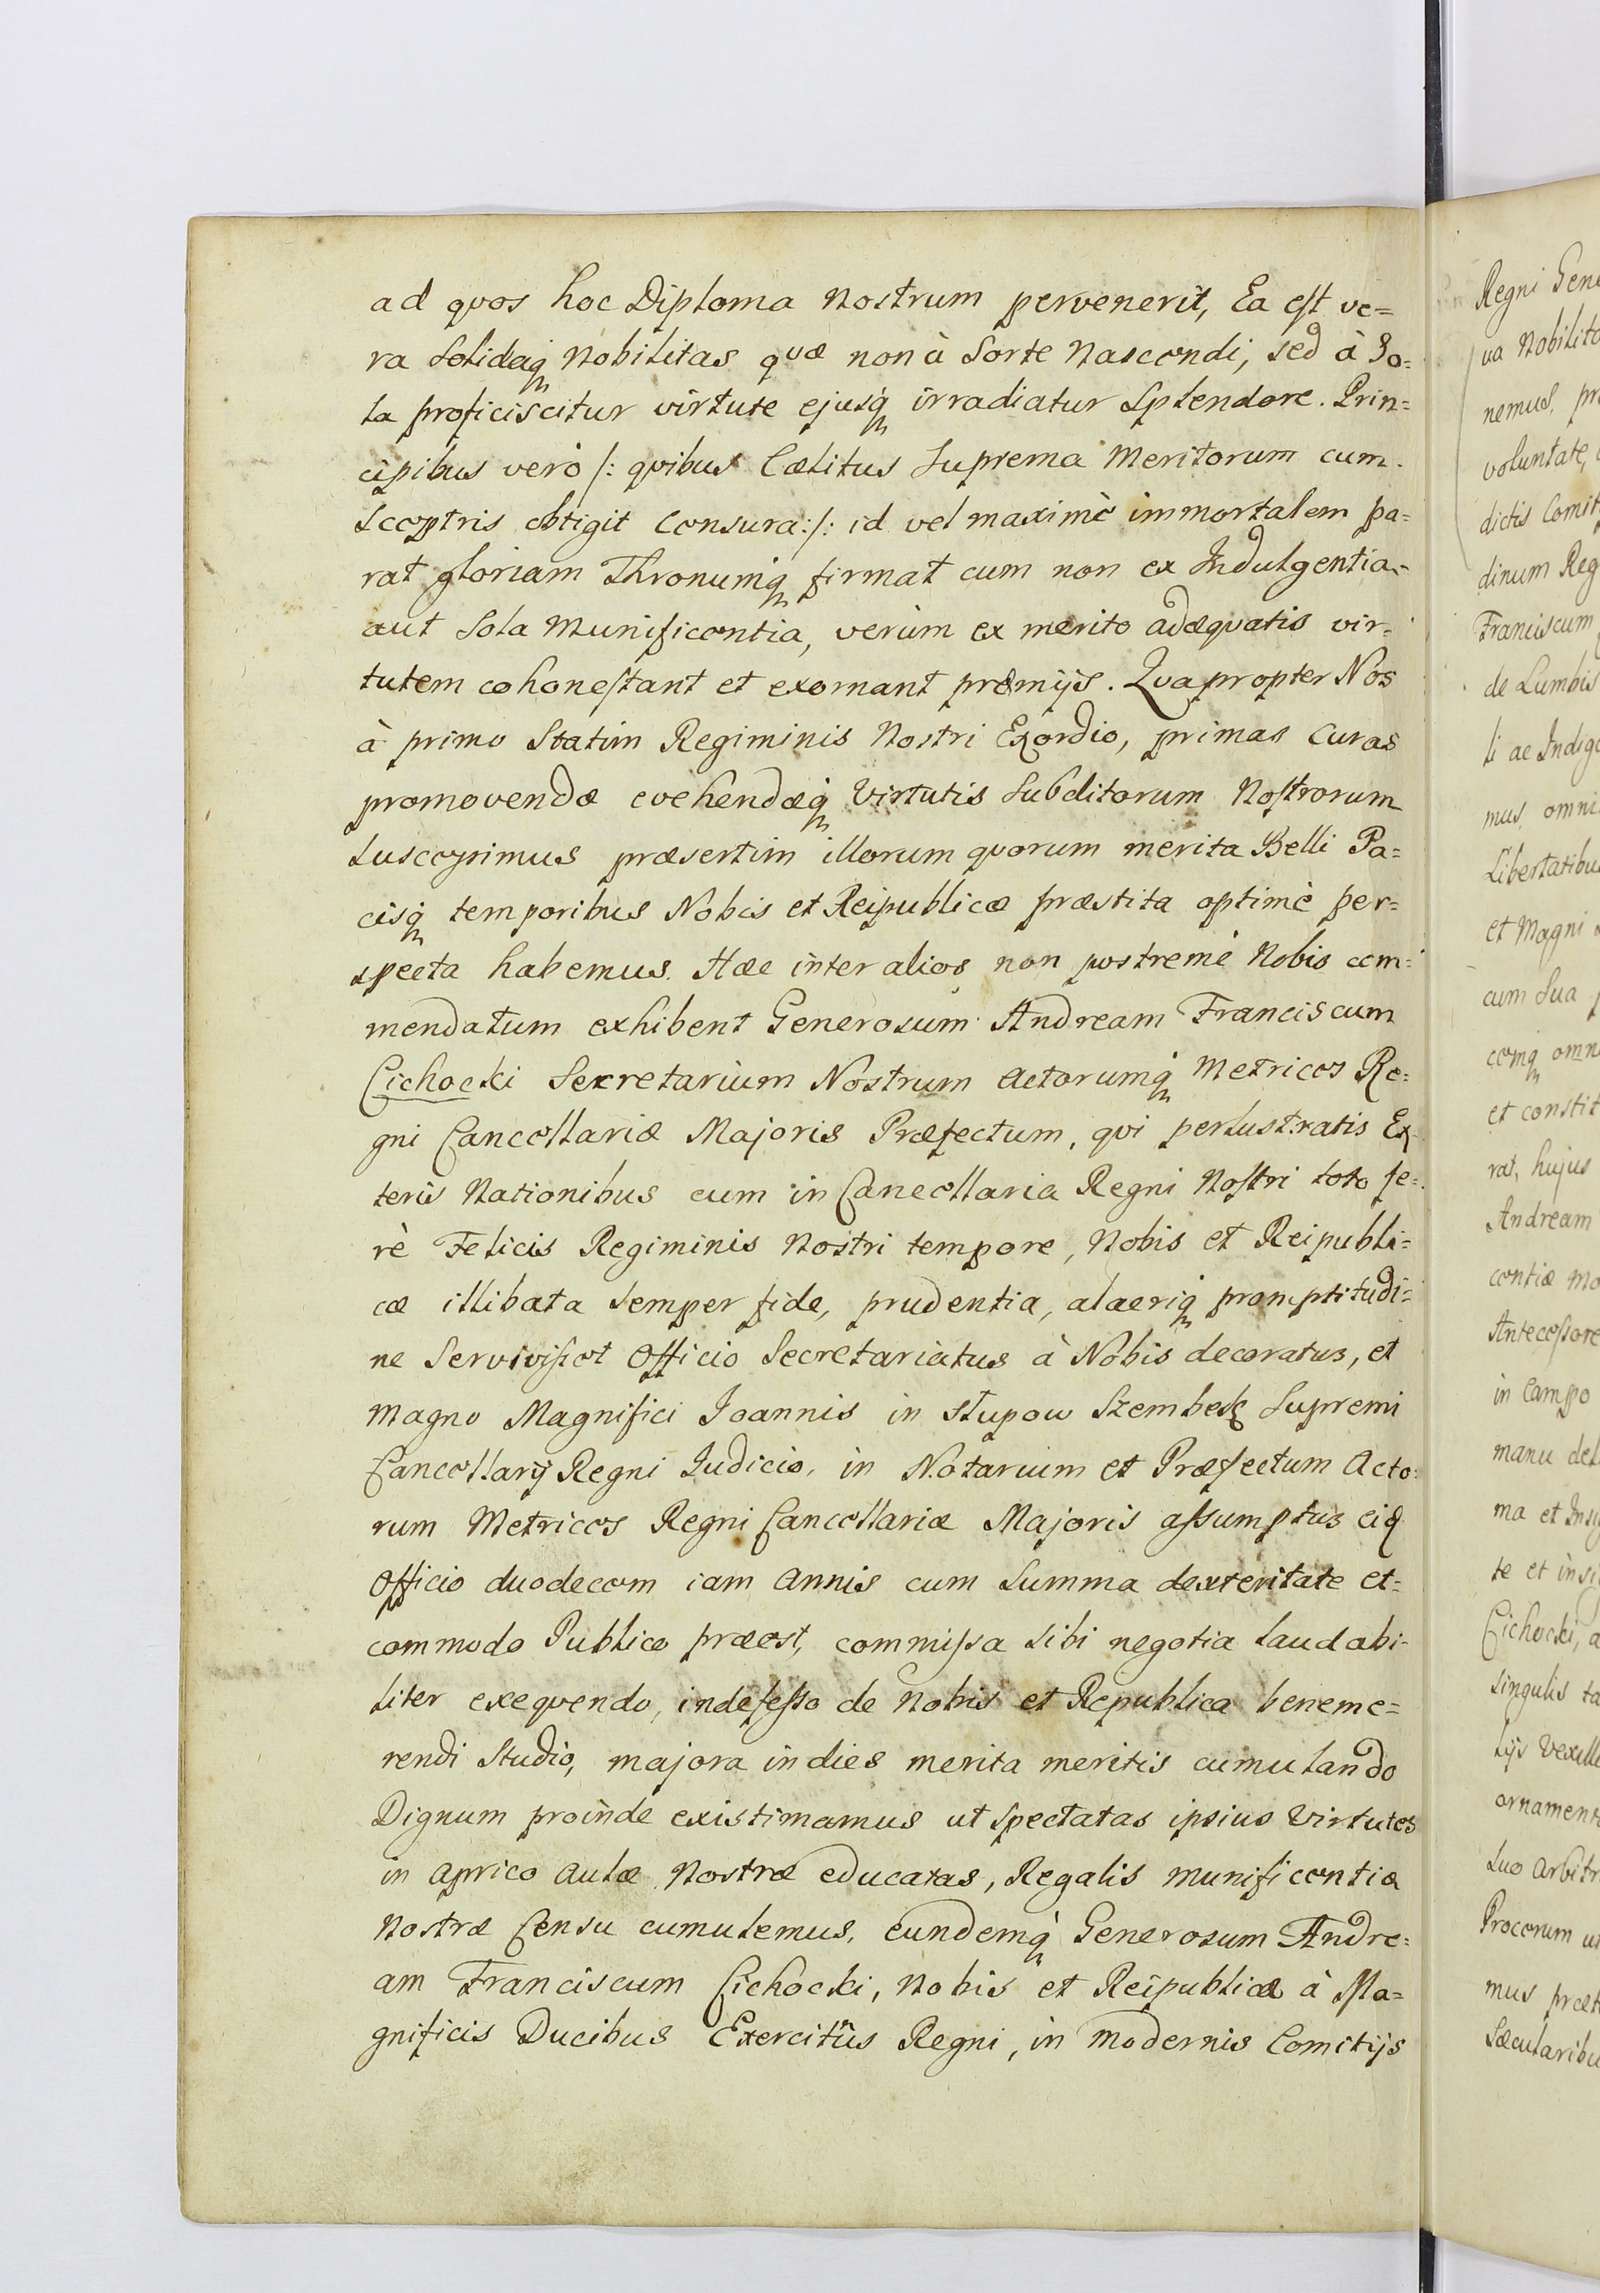 ad quos hoc Diploma Nostrum pervenerit, Ea est ve=
ra Solidaq3 Nobilitas quæ non à Sorte Nascendi, sed à So=
la proficiscitur virtute ejusq3 irradiatur Splendore. Prin=
cipibus verò /: quibus Cælitus Suprema Meritorum cum
Sceptris obtigit Censura:/: id vel maximè immortalem pa=
rat gloriam Thronumq3 firmat cum non ex Indulgentia
aut Sola Munificentia, verùm ex merito adæquatis vir=
tutem cohonestant et exornant præmijs. Quapropter Nos
à primo Statim Regiminis Nostri Exordio, primas Curas
promovendæ evehendæq3 Virtutis Subditorum Nostrorum
Suscepimus præsertim illorum quorum merita Belli Pa=
cisq3 temporibus Nobis et Reipublicæ præstita optimè per=
specta habemus. Hæc inter alios non postremè Nobis com=
mendatum exhibent Generosum Andream Franciscum
Cichocki Secretarium Nostrum Actorumq3 Metrices Re=
gni Cancellariæ Majoris Præfectum, qui perlustratis Ex
teris Nationibus cum in Cancellaria Regni Nostri toto fe=
rè Felicis Regiminis Nostri tempore, Nobis et Reipubli=
cæ illibata Semper fide, prudentia, alacriq3 promptitudi=
ne Servivisset Officio Secretariatus à Nobis decoratus, et
Magno Magnifici Joannis in Słupow Szembek Supremi
Cancellarij Regni Judicio, in Notarium et Præfectum Acto=
rum Metrices Regni Cancellariæ Majoris assumptus eiq
Officio duodecem iam Annis cum Summa dexteritate et=
commodo Publico præest, commissa sibi negotia laudabi=
liter exequendo, indefesso de Nobis et Republica beneme=
rendi Studio, majora in dies merita meritis cumulando
Dignum proinde existimamus ut Spectatas ipsius Virtutes
in Aprico Aulæ Nostræ educatas, Regalis Munificentiæ
Nostræ Censu cumulemus, eundemq3 Generosum Andre=
am Franciscum Cichocki, Nobis et Reipublicæ à Ma=
gnificis Ducibus Exercitus Regni, in modernis Comitijs
Regni Gene
va Nobilita
nemus, pr
voluntate,
dictis Comit
dinum Reg
Franciscum
de Lumbis
li ac Indige
mus, omni
Libertatibus
et Magni
cum Sua
comq3 omn
et constit
rat, hujus
Andream
centiæ
Antecessore
in Campo
manu
ma et Insi
te et insi
Cichocki, a
Singulis ta
lijs Vexill
ornament
Suo Arbitr
Procerum
mus præ
Sæcularibu